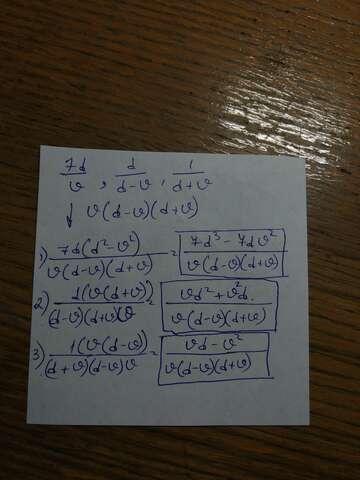 7d/v, d/d-v, 1/d+v
↓ v(d-v)(d+v)
1) 7d(d²-v²)/v(d-v)(d+v) = 7d³-7dv²/v(d-v)(d+v)
2) d(v(d+v))/(d-v)(d+v)v = vd²+v²d./v(d-v)(d+v)
3) 1(v(d-v))/(d+v)(d-v)v = vd-v²/v(d-v)(d+v)